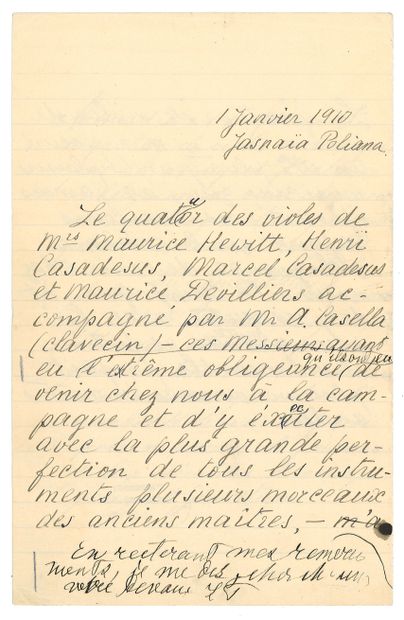 1 Janvier 1910
Jasnaïa Poliana.
Le quatuor des violes de
Mrs Maurice Hewitt, Henri
Casadesus, Marcel Casadesus
et Maurice Devilliers ac-
compagné par Mr A. Casella
(clavecin) – ces Messieurs
qu
eu l'extrême obligeance de
venir chez nous à la cam-
pagne et d'y éxécuter
avec la plus grande per-
fection de tous les instru-
ments plusieurs morceaux
des anciens maîtres, – m'a
En réiterant mes remerci
ments, je me dis,